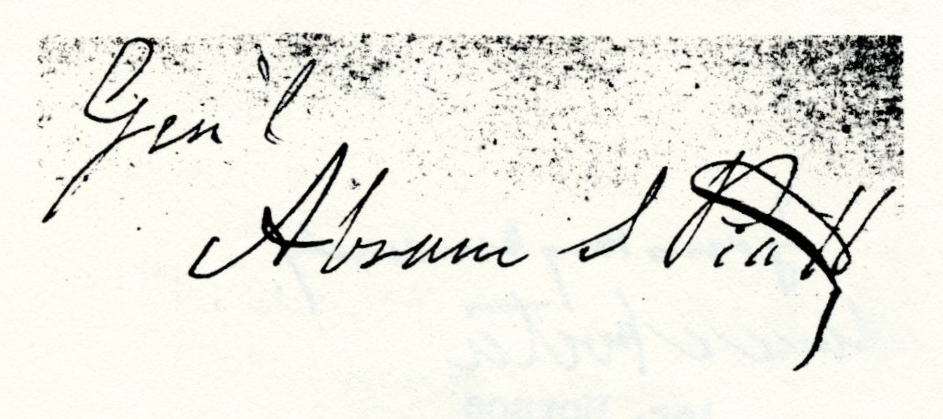 Gen'l
Abram S Piatt